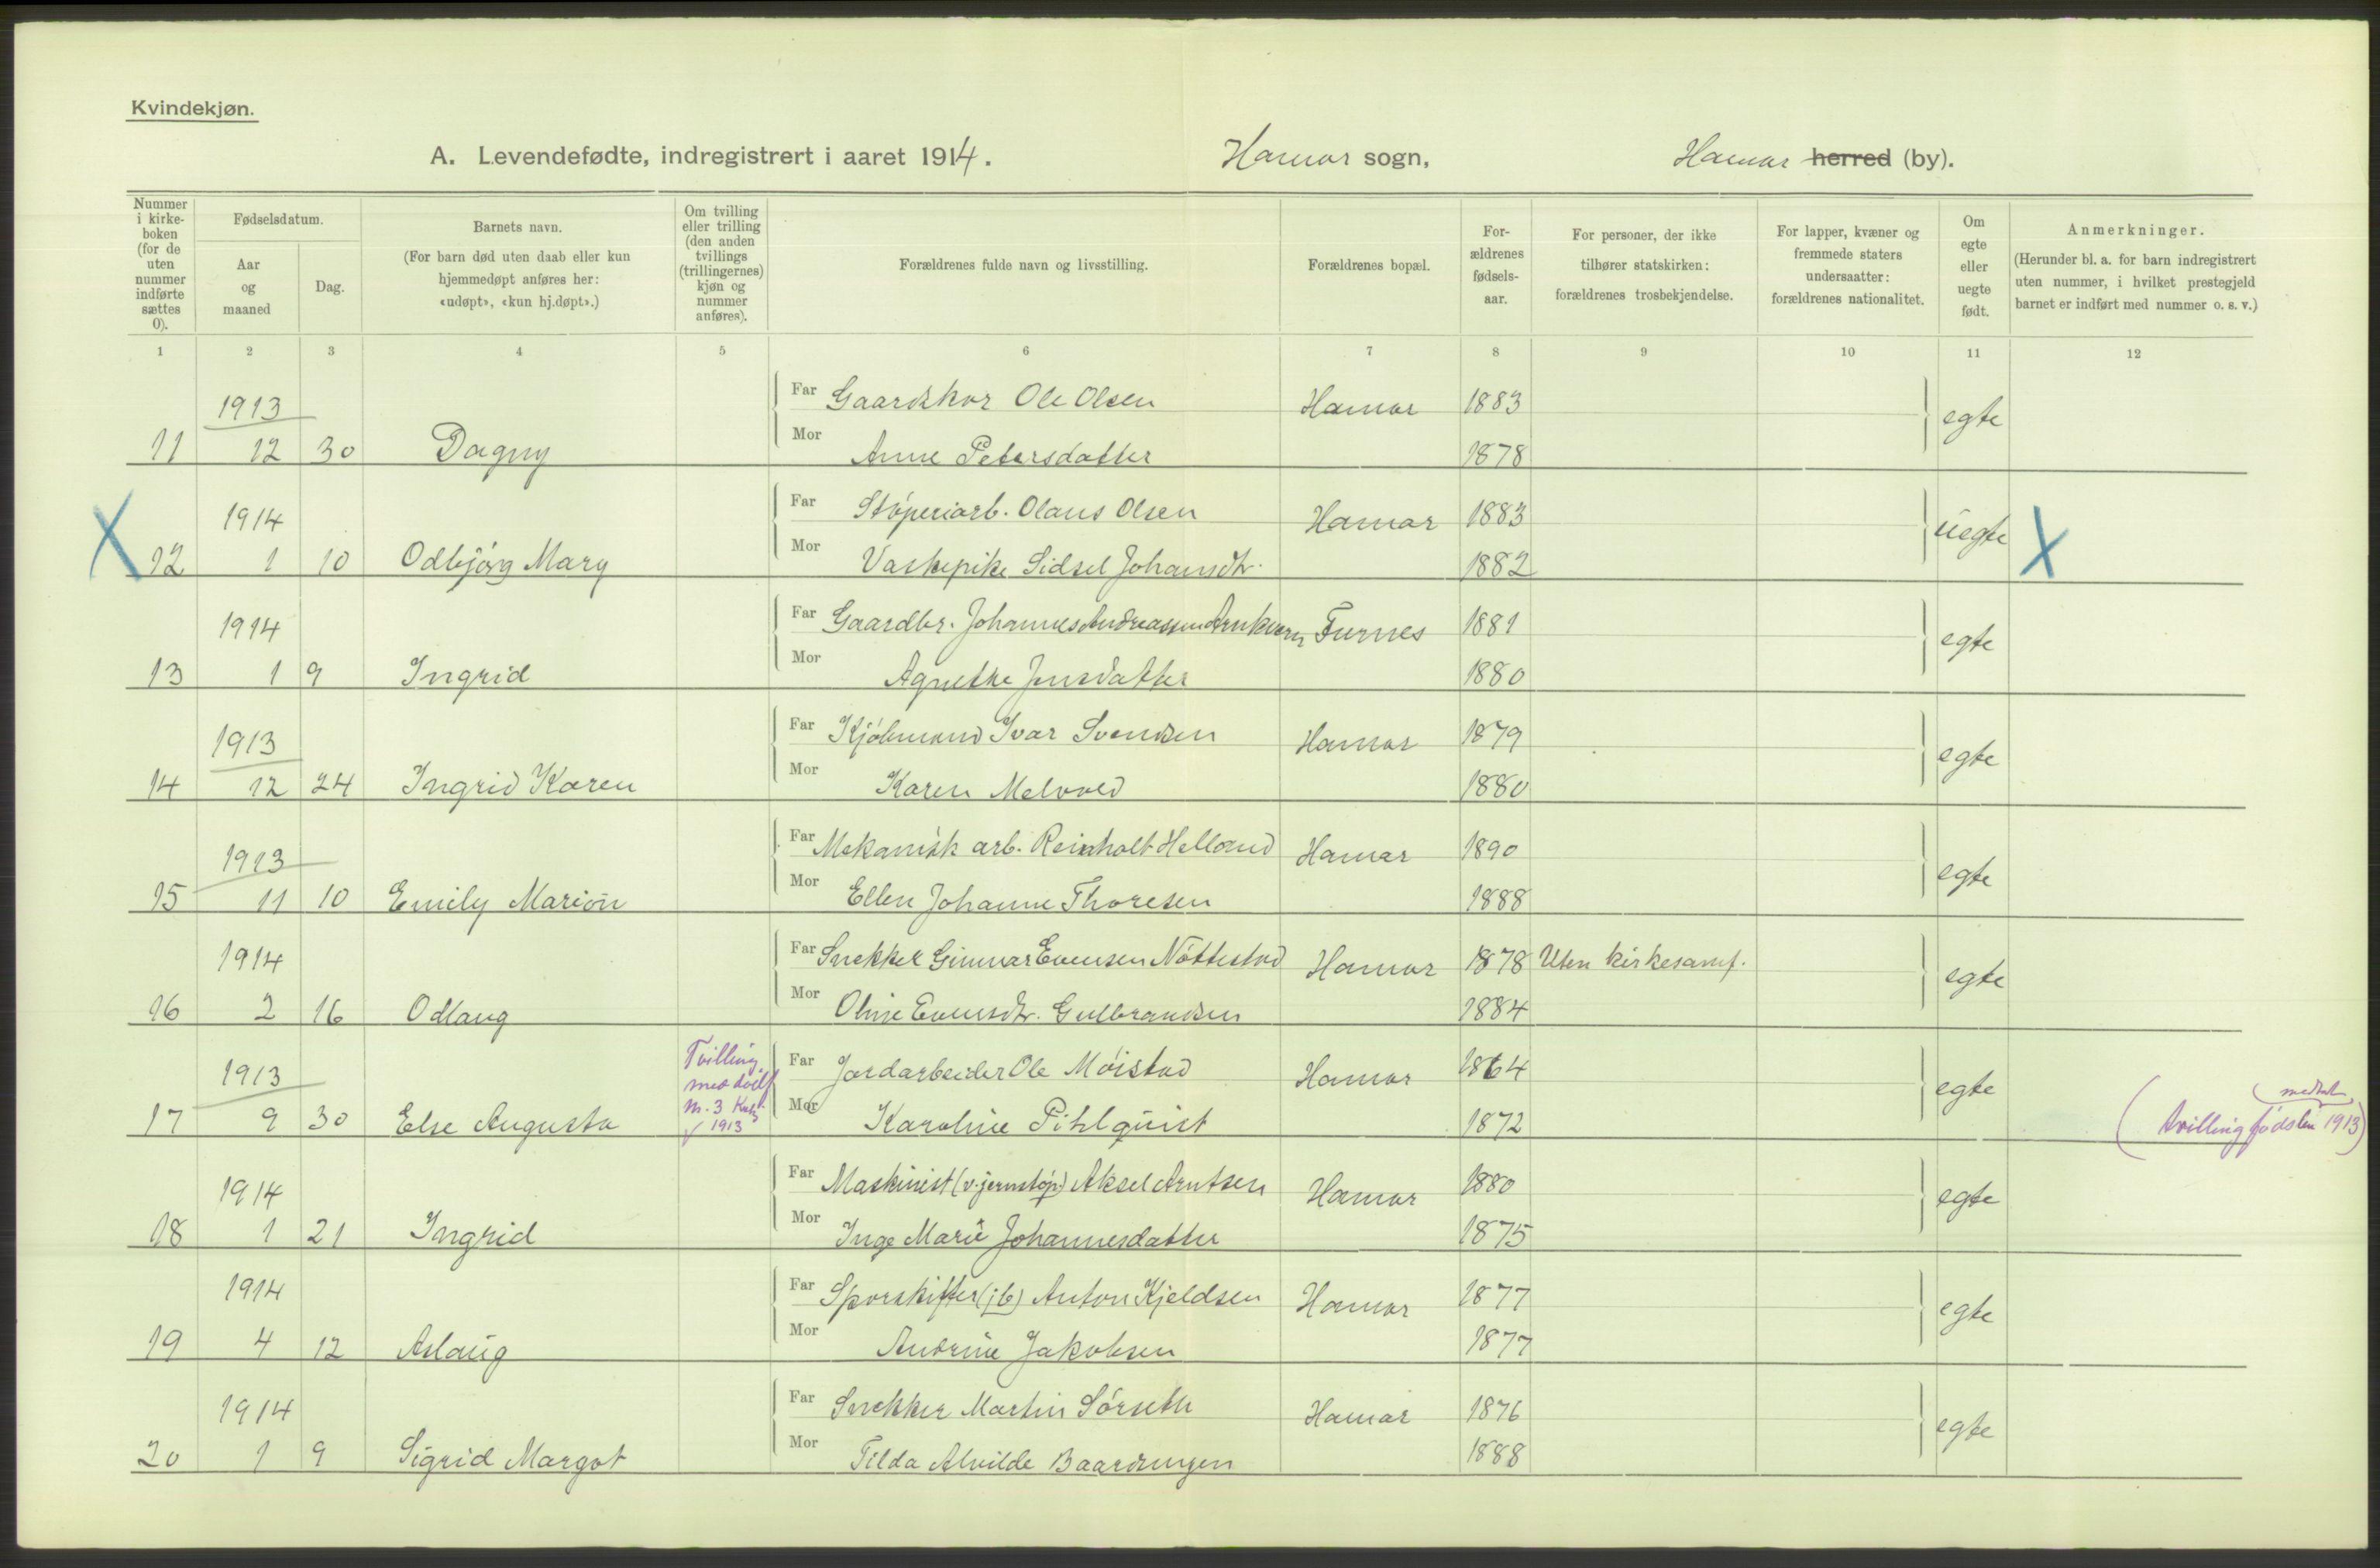 Kvindekjøn.
A. Levendefødte, indregistrert i aaret 1914. Hamar sogn, Hamar herred (by).
Nummer i kirkeboken (for de uten nummer indførte sættes 0).
Fødselsdatum.
Aar og maaned
Dag.
Barnets navn.
(For barn død uten daab eller kun hjemmedøpt anføres her: «udøpt», «kun hj.døpt».)
Om tvilling eller trilling (den anden tvillings (trillingernes) kjøn og nummer anføres).
Forældrenes fulde navn og livsstilling.
Forældrenes bopæl.
Forældrenes fødselsaar.
For personer, der ikke tilhører statskirken: forældrenes trosbekjendelse.
For lapper, kvæner og fremmede staters undersaatter: forældrenes nationalitet.
Om egte eller uegte født.
Anmerkninger.
(Herunder bl. a. for barn indregistrert uten nummer, i hvilket prestegjeld barnet er indført med nummer o. s. v.)
1 2 3 4 5 6 7 8 9 10 11 12
1913 Far Gaardskar Ole Olsen Hamar 1883 egte
11 12 30 Dagny Mor Anne Petersdatter 1878
1914 Far Støperiarb. Olaus Olsen Hamar 1883 uegte
X 12 1 10 Odbjørg Mary Mor Vaskepike Sidsel Johansdtr. 1882 X
1914 Far Gaardbr. Johannes Andreassen Arnkværn Furnes 1881 egte
13 1 9 Ingrid Mor Agnethe Jensdatter 1880
1913 Far Kjøbmand Ivar Svendsen Hamar 1879 egte
14 12 24 Ingrid Karen Mor Karen Melvold 1880
1913 Far Mekanisk arb. Reinholt Helland Hamar 1890 egte
15 11 10 Emily Marion Mor Ellen Johanne Thoresen 1888
1914 Far Snekker Gunnar Evensen Nøttestad Hamar 1878 Uten kirkesamf. egte
16 2 16 Odlaug Mor Oline Evensdtr. Gulbrandsen 1884
1913 Tvilling med Far Jordarbeider Ole Møistad Hamar 1864 egte
17 9 30 Else Augusta m. 3 1913 Mor Karoline Pihlquist 1872 (tvillingfødslen 1913)
1914 Far Maskinist (v. jernstøp.) Aksel Arntsen Hamar 1880 egte
18 1 21 Ingrid Mor Inge Marie Johannesdatter 1875
1914 Far Sporskifter (jb) Anton Kjeldsen Hamar 1877 egte
19 4 12 Aslaug Mor Andrine Jakobsen 1877
1914 Far Snekker Martin Sørseth Hamar 1876 egte
20 1 9 Sigrid Margot Mor Tilda Alvilde Baardsengen 1888